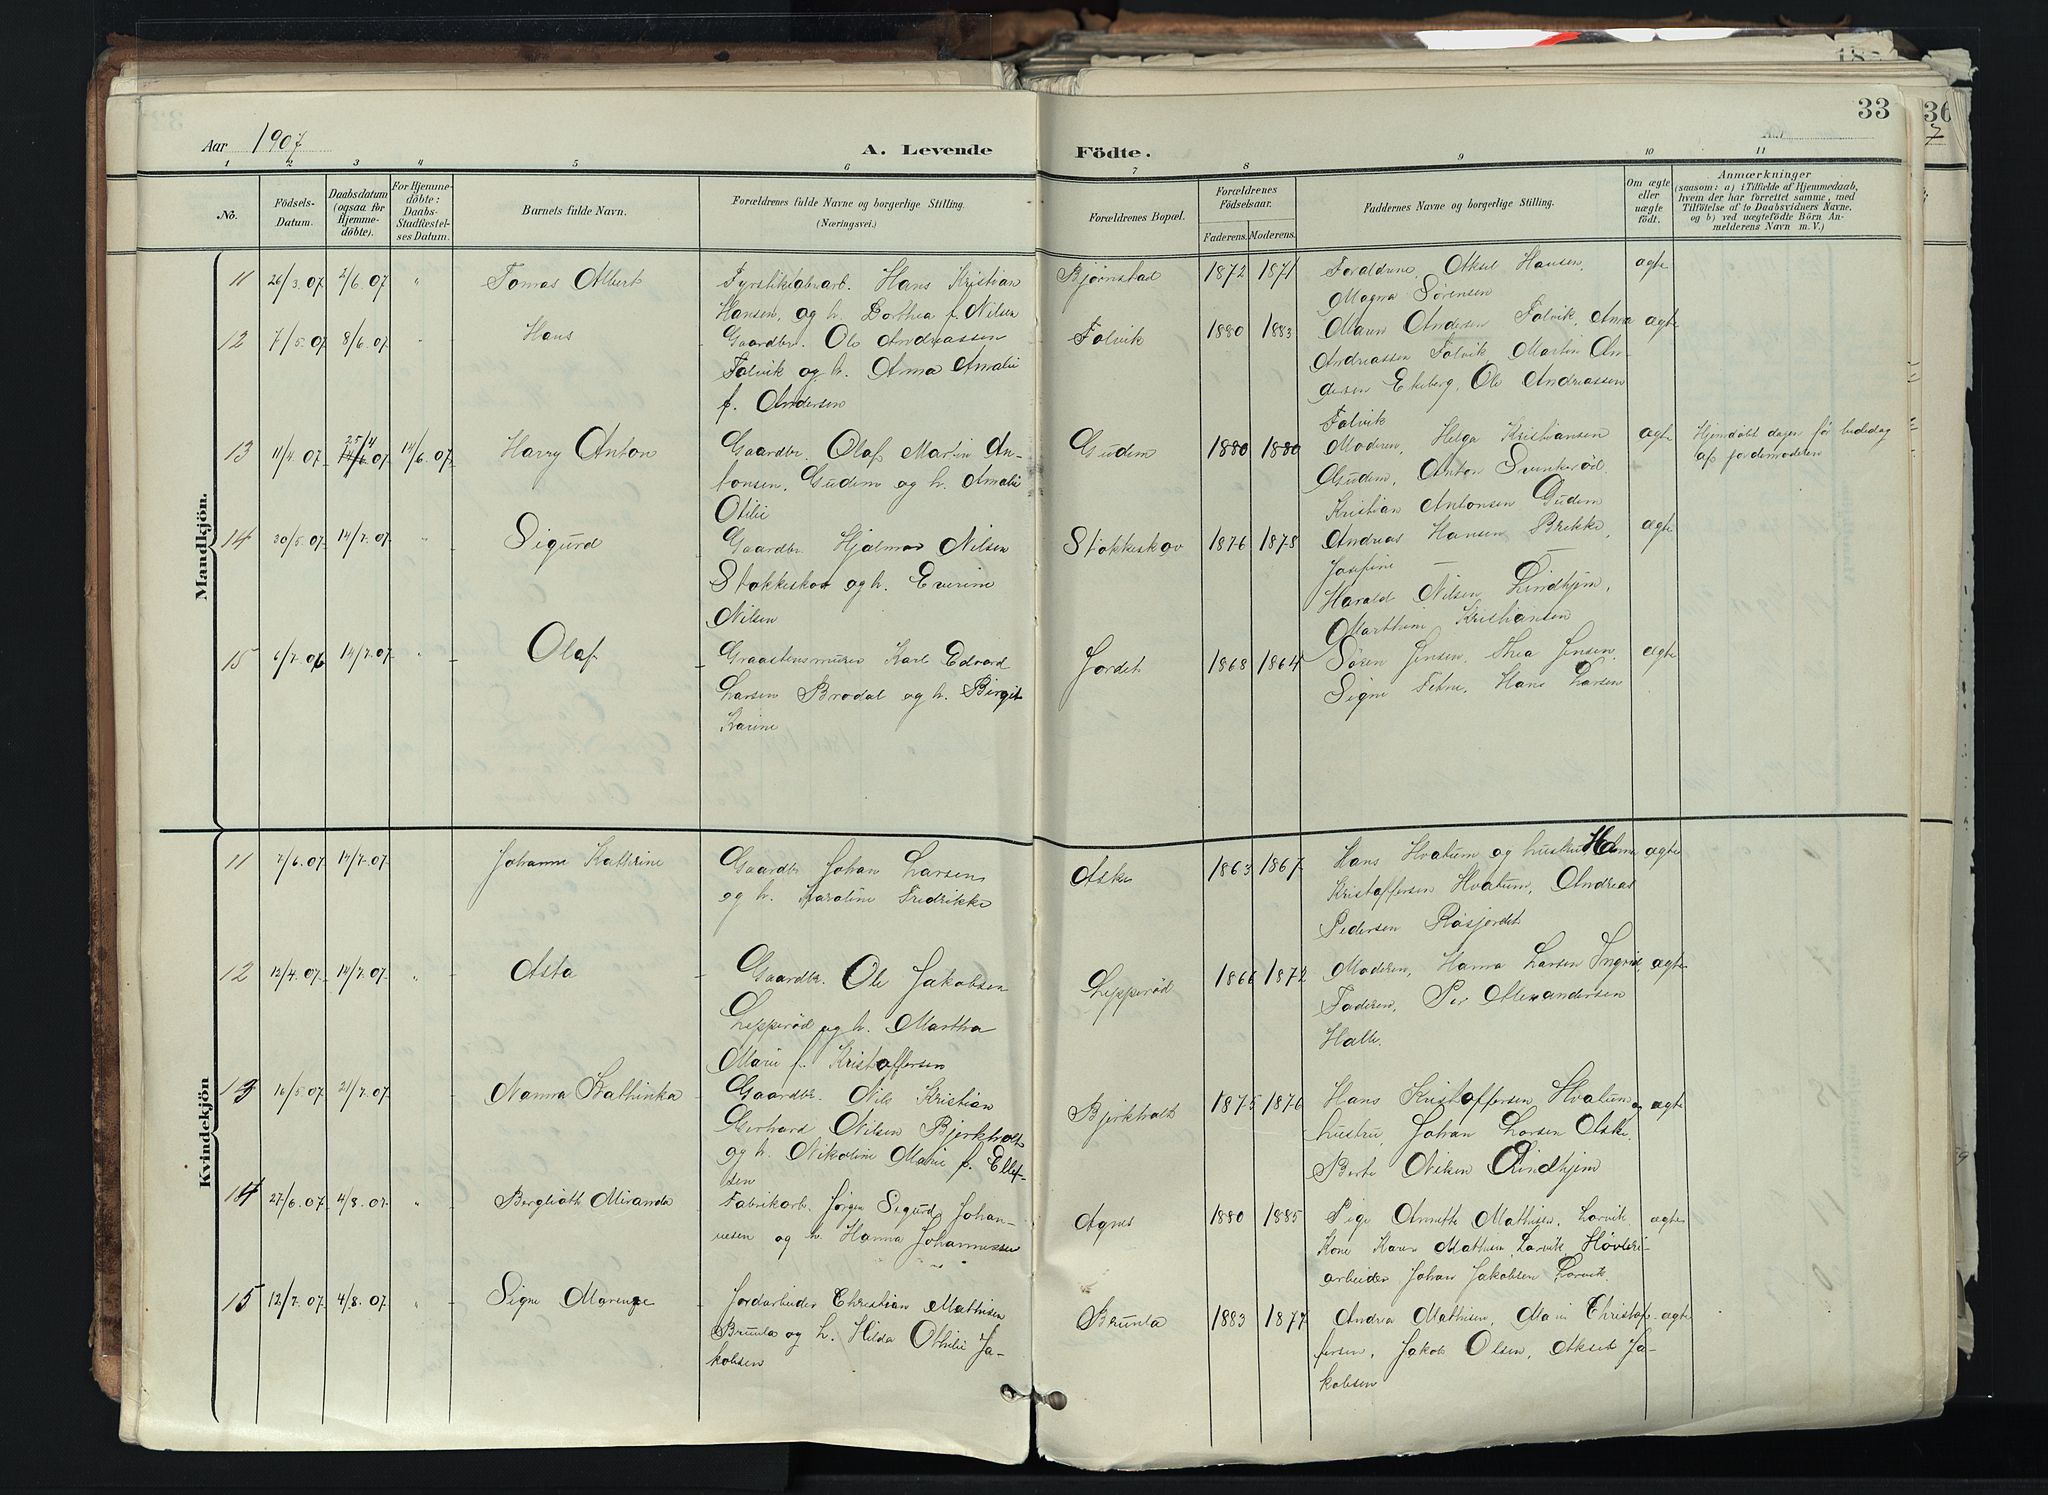 33
36
Aar 1907
A. Levende Födte.
1 2 3 4 5 6 7 8 9 10 11
No.
Födsels-Datum.
Daabsdatum (ogsaa for Hjemme-döbte).
For Hjemme-döbte: Daabs-Stadfæstel-ses Datum.
Barnets fulde Navn.
Forældrenes fulde Navne og borgerlige Stilling.
(Næringsvei.)
Forældrenes Bopæl.
Forældrenes Födselsaar.
Faderens. Moderens.
Faddernes Navne og borgerlige Stilling.
Om ægte eller uægte födt.
Anmærkninger
(saasom: a) i Tilfælde af Hjemmedaab,
hvem der har forrettet samme, med
Tilföielse af to Daabsvidners Navne,
og b) ved uægtefödte Börn An-
melderens Navn m. V.)
Mandkjön.
11 26/3.07 2/6.07 " Tomas Albert Fyrstikfabrarb. Hans Kristian Bjørnstad 1872 1871 Forældrene, Aksel Hansen, ægte
Hansen, og h. Dothea f. Nilsen Magna Sørensen
12 7/5.07 8/6.07 " Hans Gaardbr. Ole Andreassen Falvik 1880 1883 Maren Andersen Falvik, Anna ægte
Falvik og h. Anna Amalie Andreassen Falvik, Martin An-
f. Andersen dersen Ekeberg, Ole Andreassen
Falvik
13 11/4.07 25/4 14/6.07 14/6.07 Harry Anton Gaardbr. Olaf Martin An- Gudem 1880 1880 Moderen, Helga Kristiansen ægte Hjemdøbt dagen før bededag
tonsen, Gudem og h. Amalie Gudem, Anton Svinkerød, af jordemoderen
Otilie Kristian Antonsen Gudem
14 30/5.07 14/7.07 " Sigurd Gaardbr. Hjalmar Nilsen Stokkeskov 1876 1878 Andreas Hansen Brekke, ægte
Stokkeskov og h. Everine Josefine — —
Nilsen Harald Nilsen Lindhjem,
Marthine Kristiansen
15 6/7.06 14/7.07 " Olaf Graastensmurer Karl Edvard Jordet 1868 1864 Søren Jensen, Thea Jensen, ægte
Larsen Brodal og h. Birgit Signe Hans Larsen
Karine
Kvindekjön
11 7/6.07 14/7.07 Johanne Kathrine Gaardbr Johan Larsen Aske 1863 1867 Hans Hvatum og hustru ægte
og h. Karoline Fredrikke Kristoffersen Hvatum, Andreas
Pedersen Røsjordet
12 12/4.07 14/7.07 " Asta Gaardbr. Ole Jakobsen Lepperød 1866 1872 Moderen, Hanna Larsen Ingrid ægte
Lepperød og h. Martha Faderen, Per Alexandersen
Marie f. Kristoffersen Halle.
13 16/5.07 21/7.07 Nanna Kathinka Gaardbr. Nils Kristian Bjerkholt 1875 1876 Hans Kristoffersen Hvatum og ægte
Gerhard Nilsen Bjerkholt hustru, Johan Larsen Aske,
og h. Nikoline Marie f. Ellef- Berte Nilsen Lindhjem
sen
14 27/6.07 4/8.07 " Berglioth Miranda Fabrikarb. Jørgen Sigurd Johan- Agnes 1880 1885 Pige Annette Mathisen, Larvik ægte
nesen og h. Hanna Johannessen Kone Karen Mathisen, Larvik, Høvleri-
arbeider Johan Jakobsen Larvik.
15 12/7.07 4/8.07 " Signe Jordarbeider Christian Mathisen Brunla 1883 1877 Andrea Mathisen, Marie Christof- ægte
Brunla og h. Hilda Othilie Ja- fersen, Jakob Olsen, Aksel Ja-
kobsen kobsen